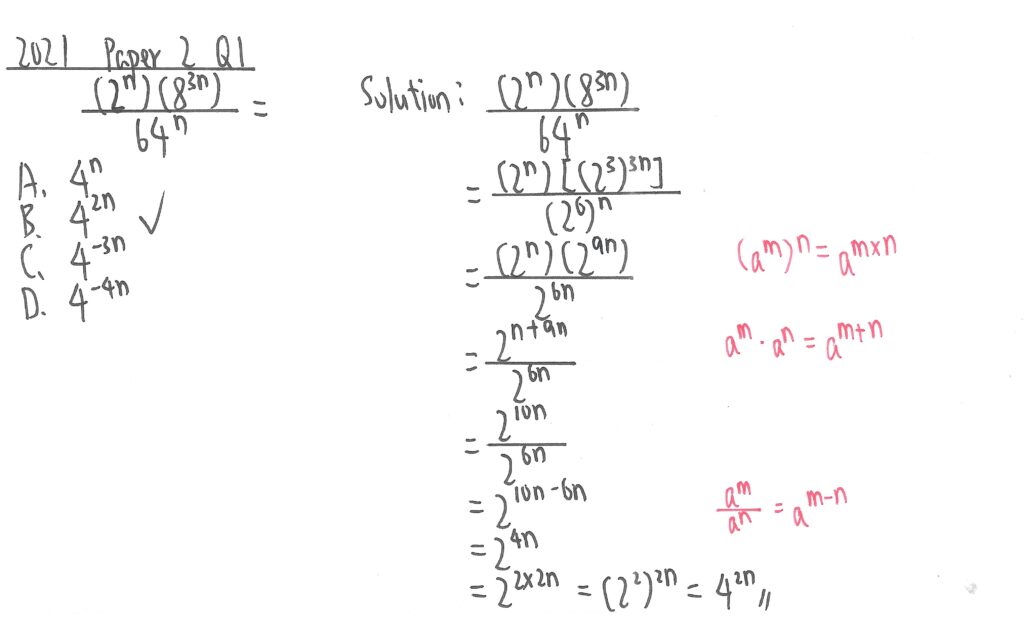 2021 Paper 2 Q1
(2ⁿ)(8³ⁿ)/64ⁿ =
A. 4ⁿ
B. 4²ⁿ ✓
C. 4⁻³ⁿ
D. 4⁻⁴ⁿ
Solution: (2ⁿ)(8³ⁿ)/64ⁿ
= (2ⁿ)[(2³)³ⁿ]/(2⁶)ⁿ
= (2ⁿ)(2⁹ⁿ)/2⁶ⁿ
(aᵐ)ⁿ = aᵐˣⁿ
= 2ⁿ⁺⁹ⁿ/2⁶ⁿ
aᵐ · aⁿ = aᵐ⁺ⁿ
= 2¹⁰ⁿ/2⁶ⁿ
= 2¹⁰ⁿ⁻⁶ⁿ
aᵐ/aⁿ = aᵐ⁻ⁿ
= 2⁴ⁿ
= 2²ˣ²ⁿ = (2²)²ⁿ = 4²ⁿ //